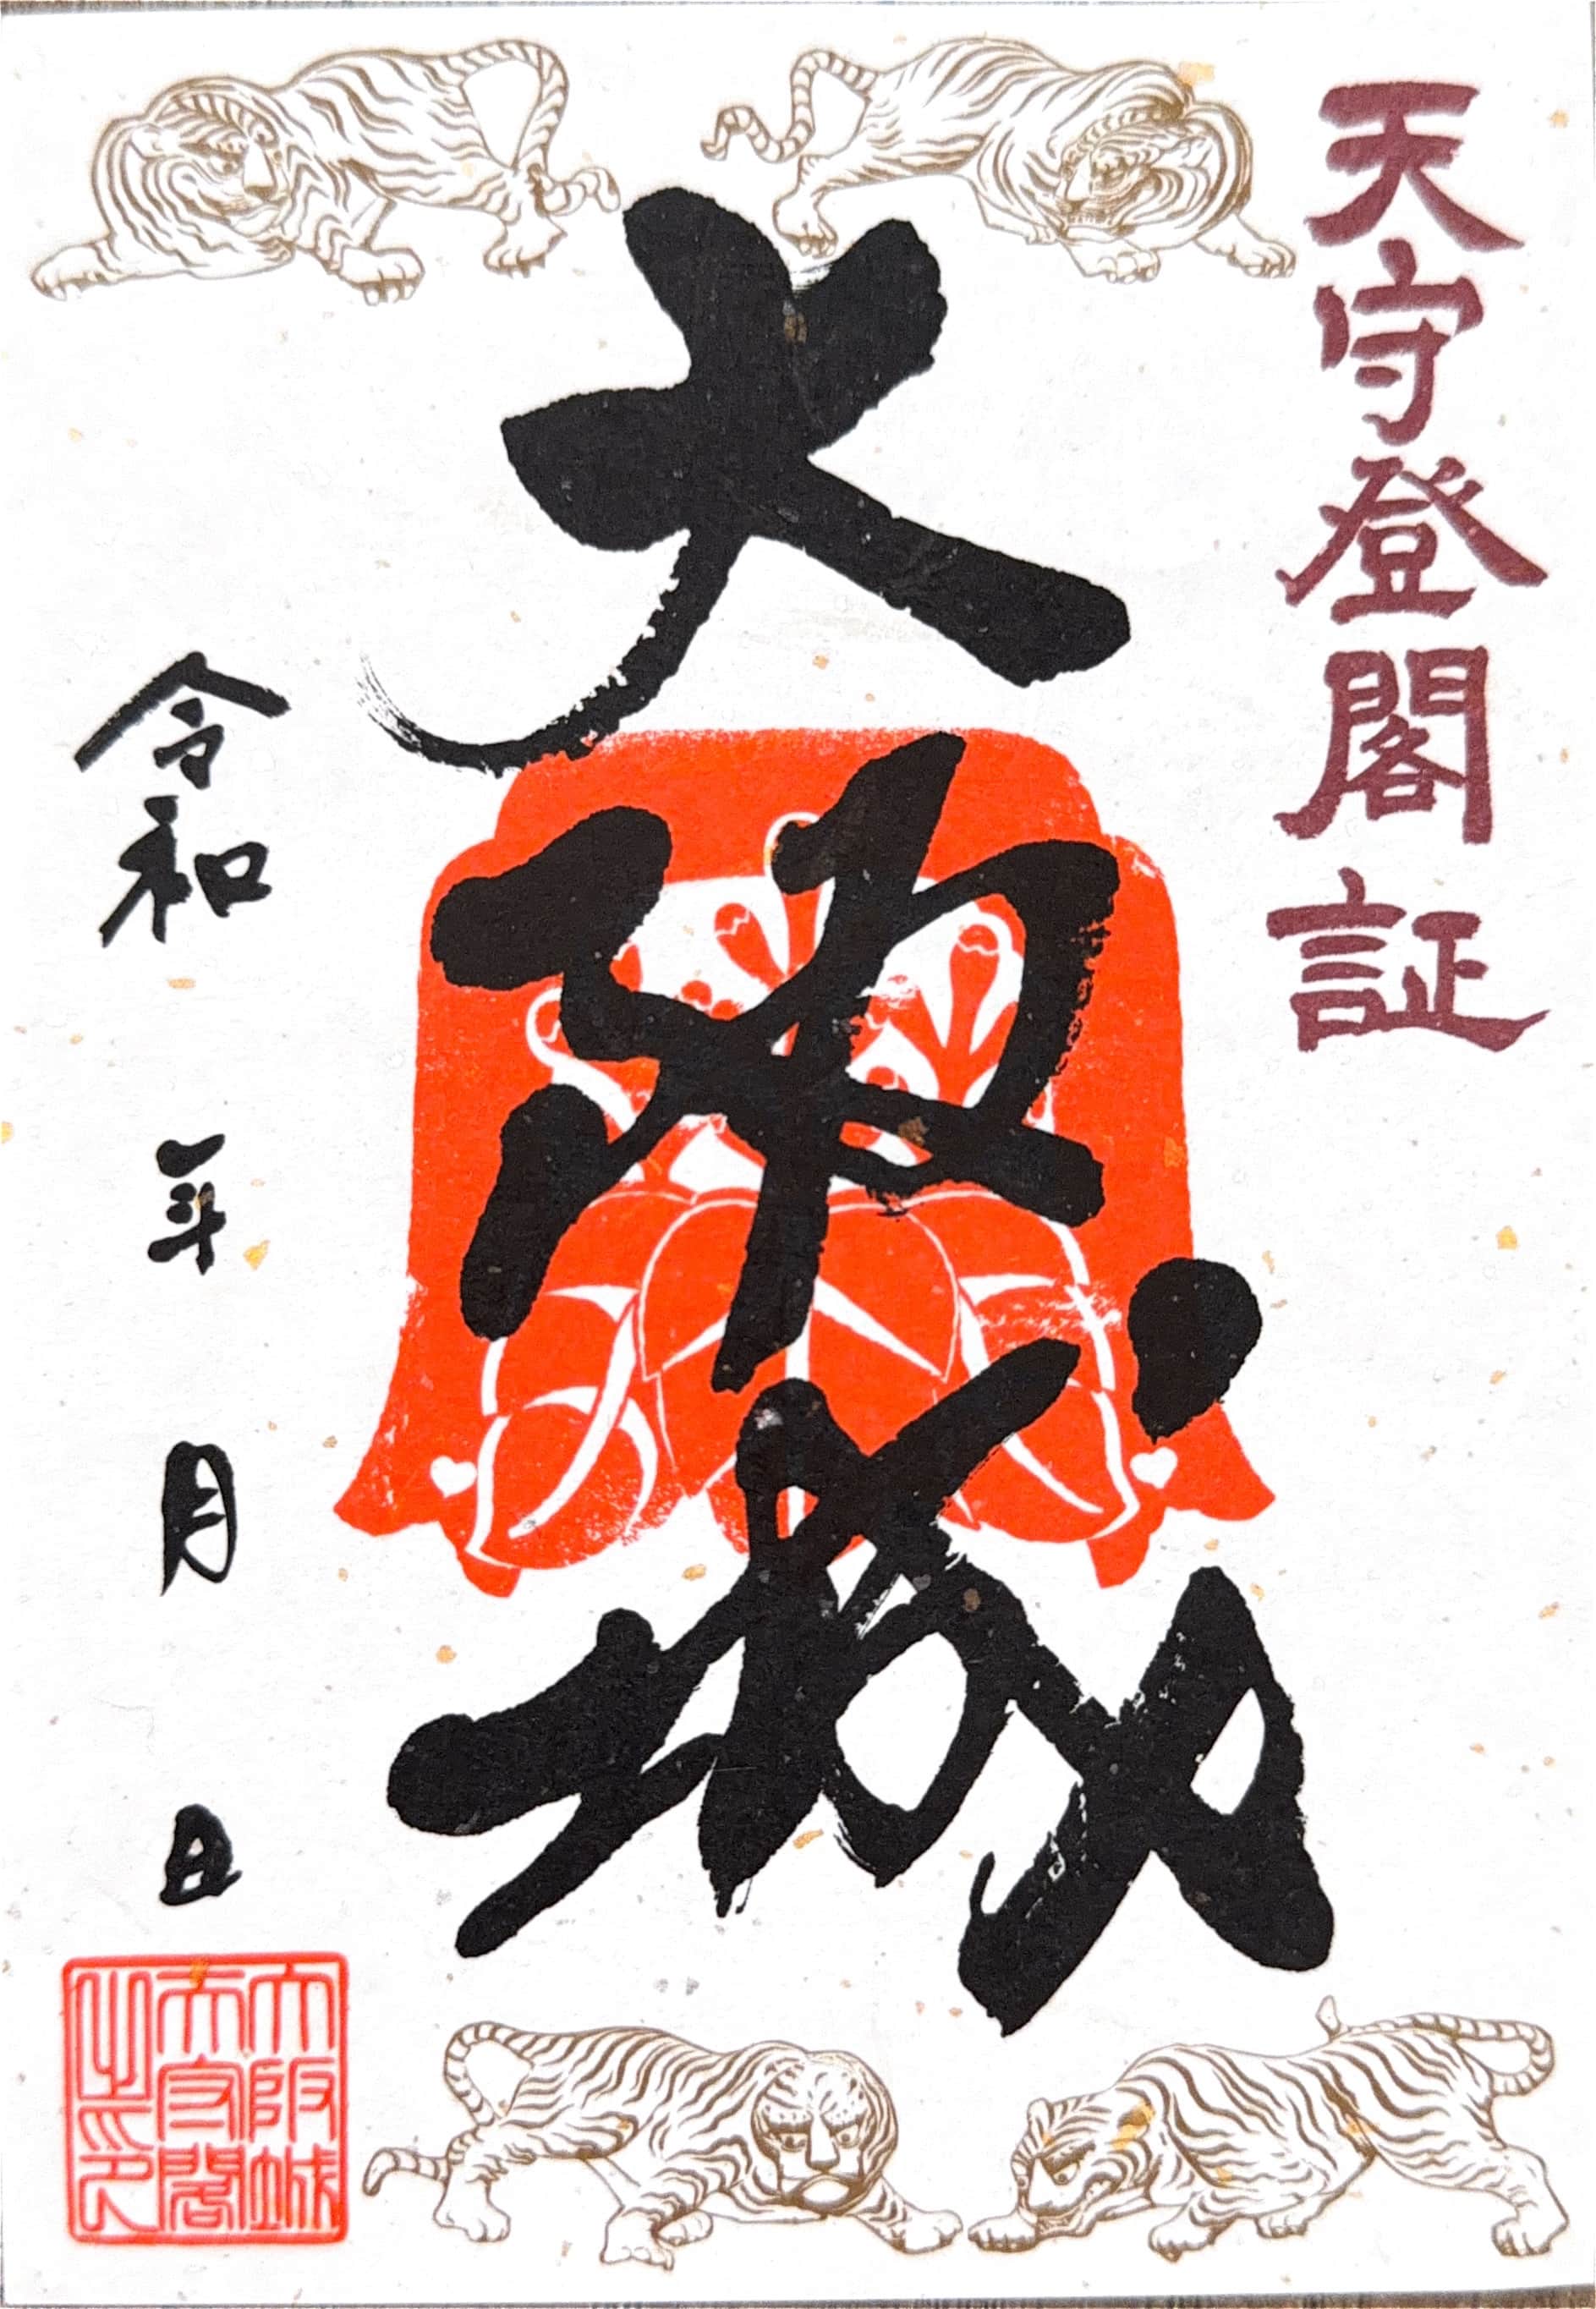 天守登閣証
大阪城
令和 年 月 日
大阪城
天守閣
之印